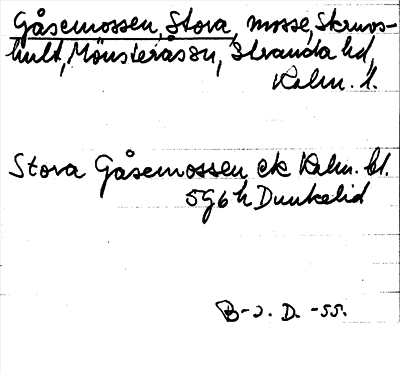 Gåsemossen, Stora, mosse, Skruvs-
hult, Mönsterås sn, Stranda hd,
Kalm. l.
Stora Gåsemossen ek Kalm. bl.
5g6h Dunkelid
B-i. D. -55.